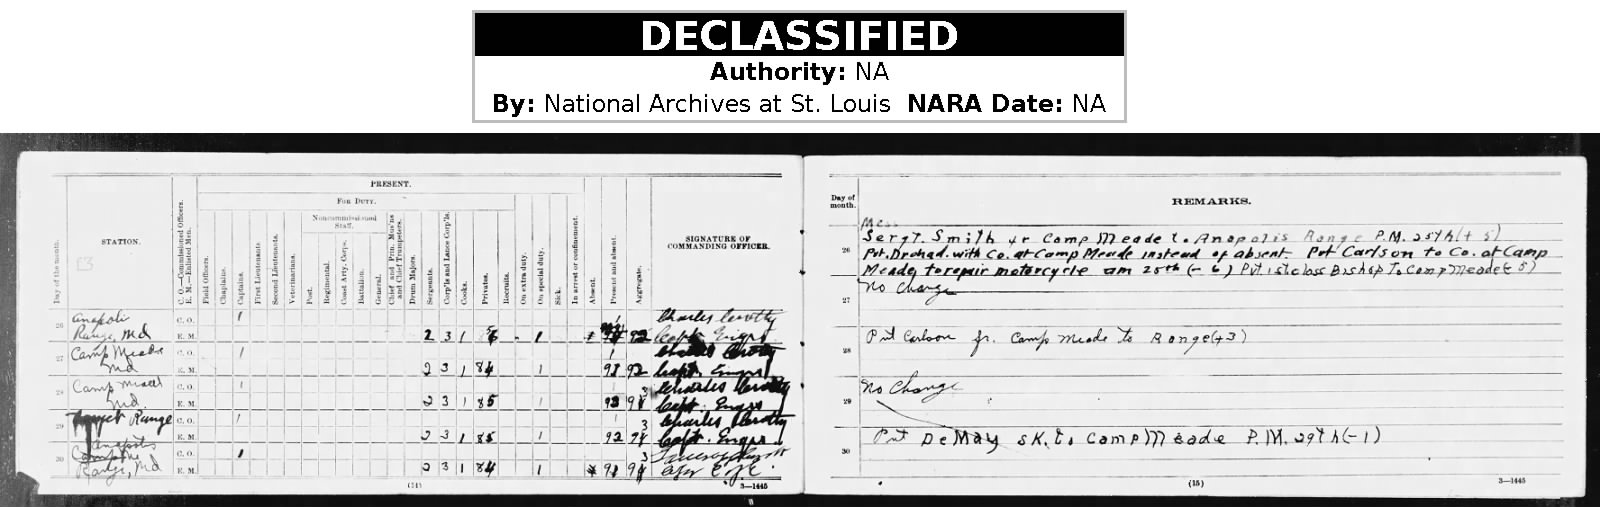 DECLASSIFIED
Authority: NA
By: National Archives at St. Louis NARA Date: NA
Day of the month.
STATION.
C. O.—Commissioned Officers.
E. M.—Enlisted Men.
PRESENT.
FOR DUTY.
Noncommissioned Staff.
Field Officers.
Chaplains.
Captains.
First Lieutenants.
Second Lieutenants.
Veterinarians.
Post.
Regimental.
Coast Arty. Corps.
Battalion.
General.
Chief and Prin. Mus'ns and Chief Trumpeters.
Drum Majors.
Sergeants.
Corp'ls and Lance Corp'ls.
Cooks.
Privates.
Recruits.
On extra duty.
On special duty.
Sick.
In arrest or confinement.
Absent.
Present and absent.
Aggregate.
SIGNATURE OF COMMANDING OFFICER.
26 Anapoli C. O. 1 Charles
Range, Md E. M. 2 3 1 1 92 Capt. Engrs
27 Camp Meade C. O. 1
Md E. M. 2 3 1 84 1 92 Capt. Engrs
28 Camp Meade C. O. 1 Charles
Md. E. M. 2 3 1 85 1 Capt. Engrs
29 Range C. O. 1 Charles
E. M. 2 3 1 85 1 92 Capt. Engrs
Anapolis
30 C. O. 1
Range, Md E. M. 2 3 1 84 1
(14) 3—1445
Day of month.
REMARKS.
Mess
26 Sergt. Smith fr Camp Meade to Anapolis Range P.M. 25th (+5)
Pvt. Drohad. with Co. at Camp Meade instead of absent. Pvt Carlson to Co. at Camp
Meade, to repair motorcycle am 25th (-6) Pvt 1st class Bishop To Camp Meade (-5)
27 No Change
28 Pvt Carlson fr. Camp Meade to Range (+3)
29 No Change
Pvt DeMay sk. to Camp Meade P.M. 29th (-1)
30
(15) 3—1445